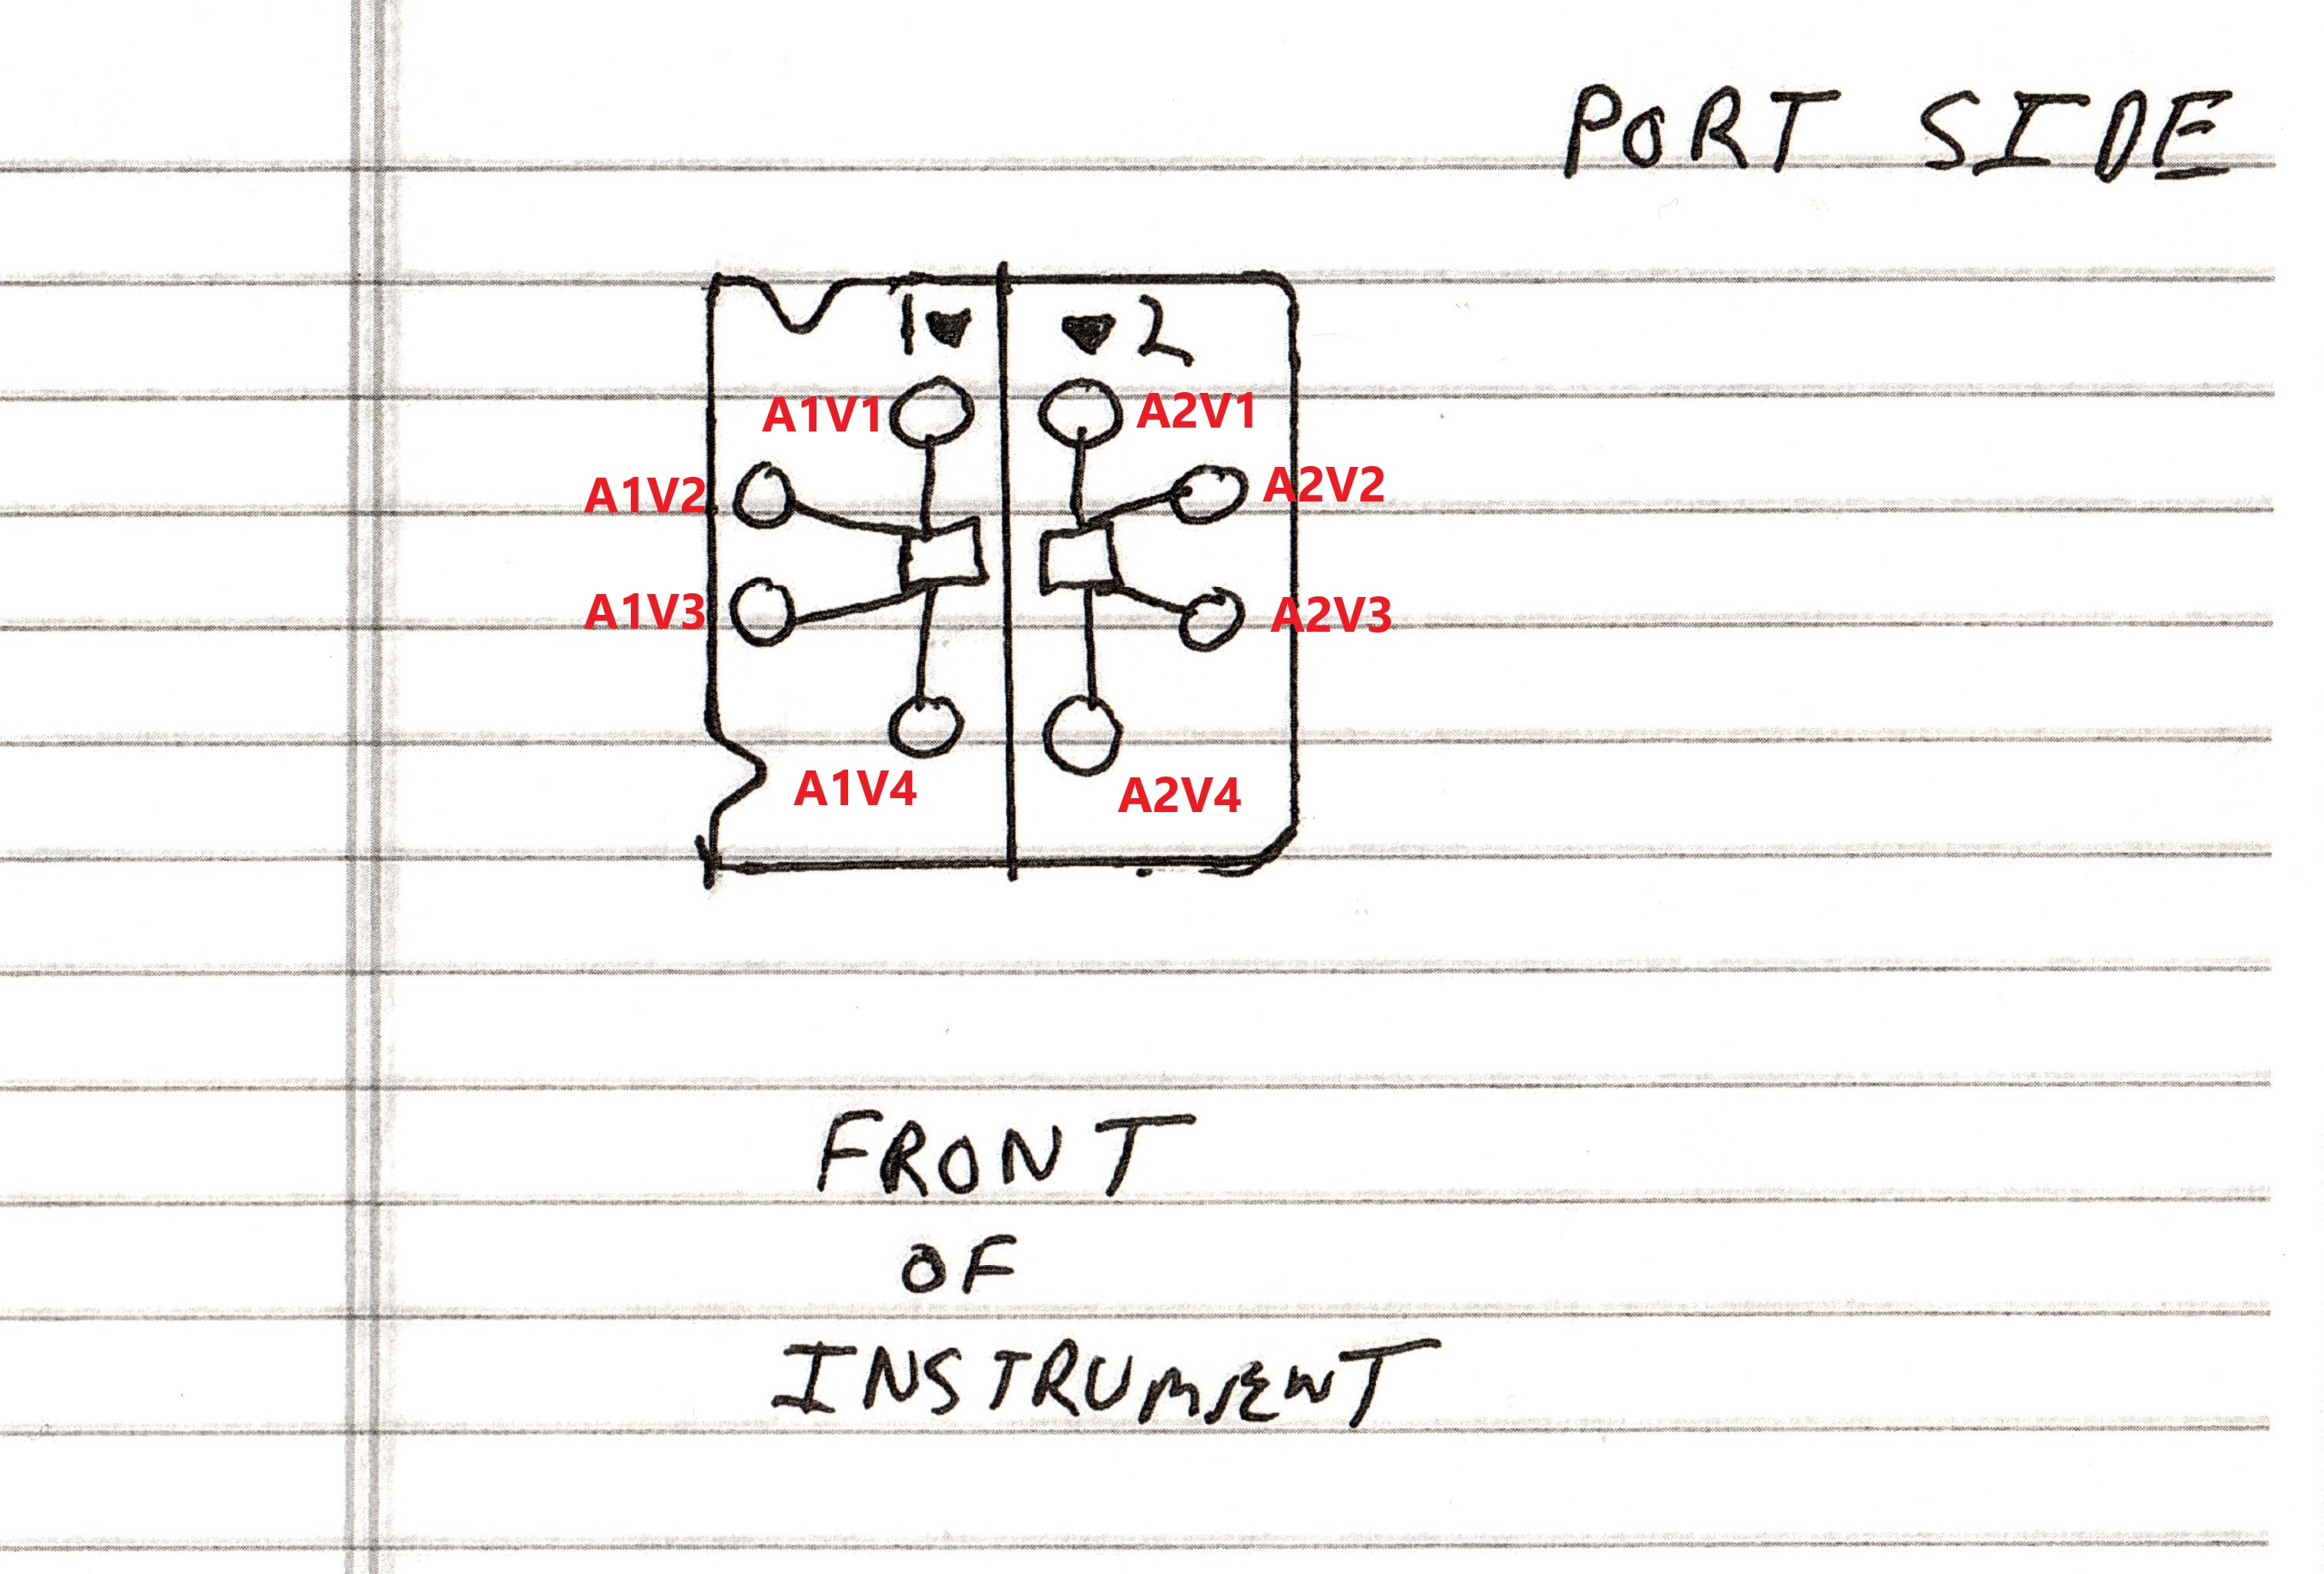 PORT SIDE
1 2
A1V1 A2V1
A1V2 A2V2
A1V3 A2V3
A1V4 A2V4
FRONT
OF
INSTRUMENT